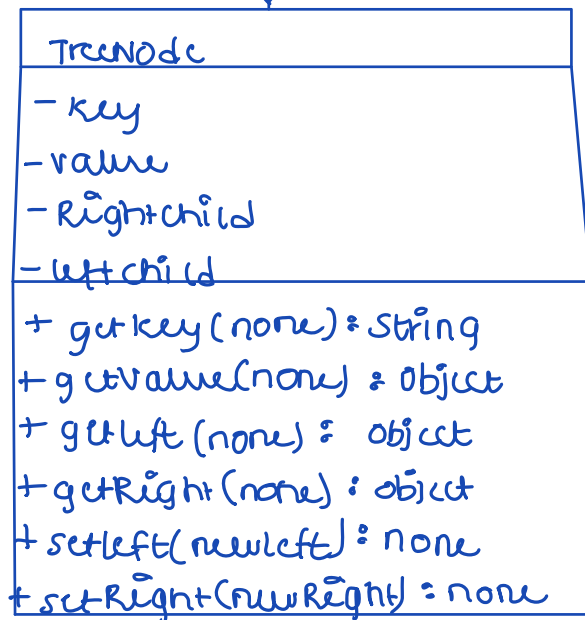 TreeNode
- Key
- value
- Rightchild
- leftchild
+ getkey(none): String
+ getvalue(none) : Object
+ getleft (none) : object
+ getRight(none) : object
+ setleft(newleft) : none
+ setRight(newRight) : none